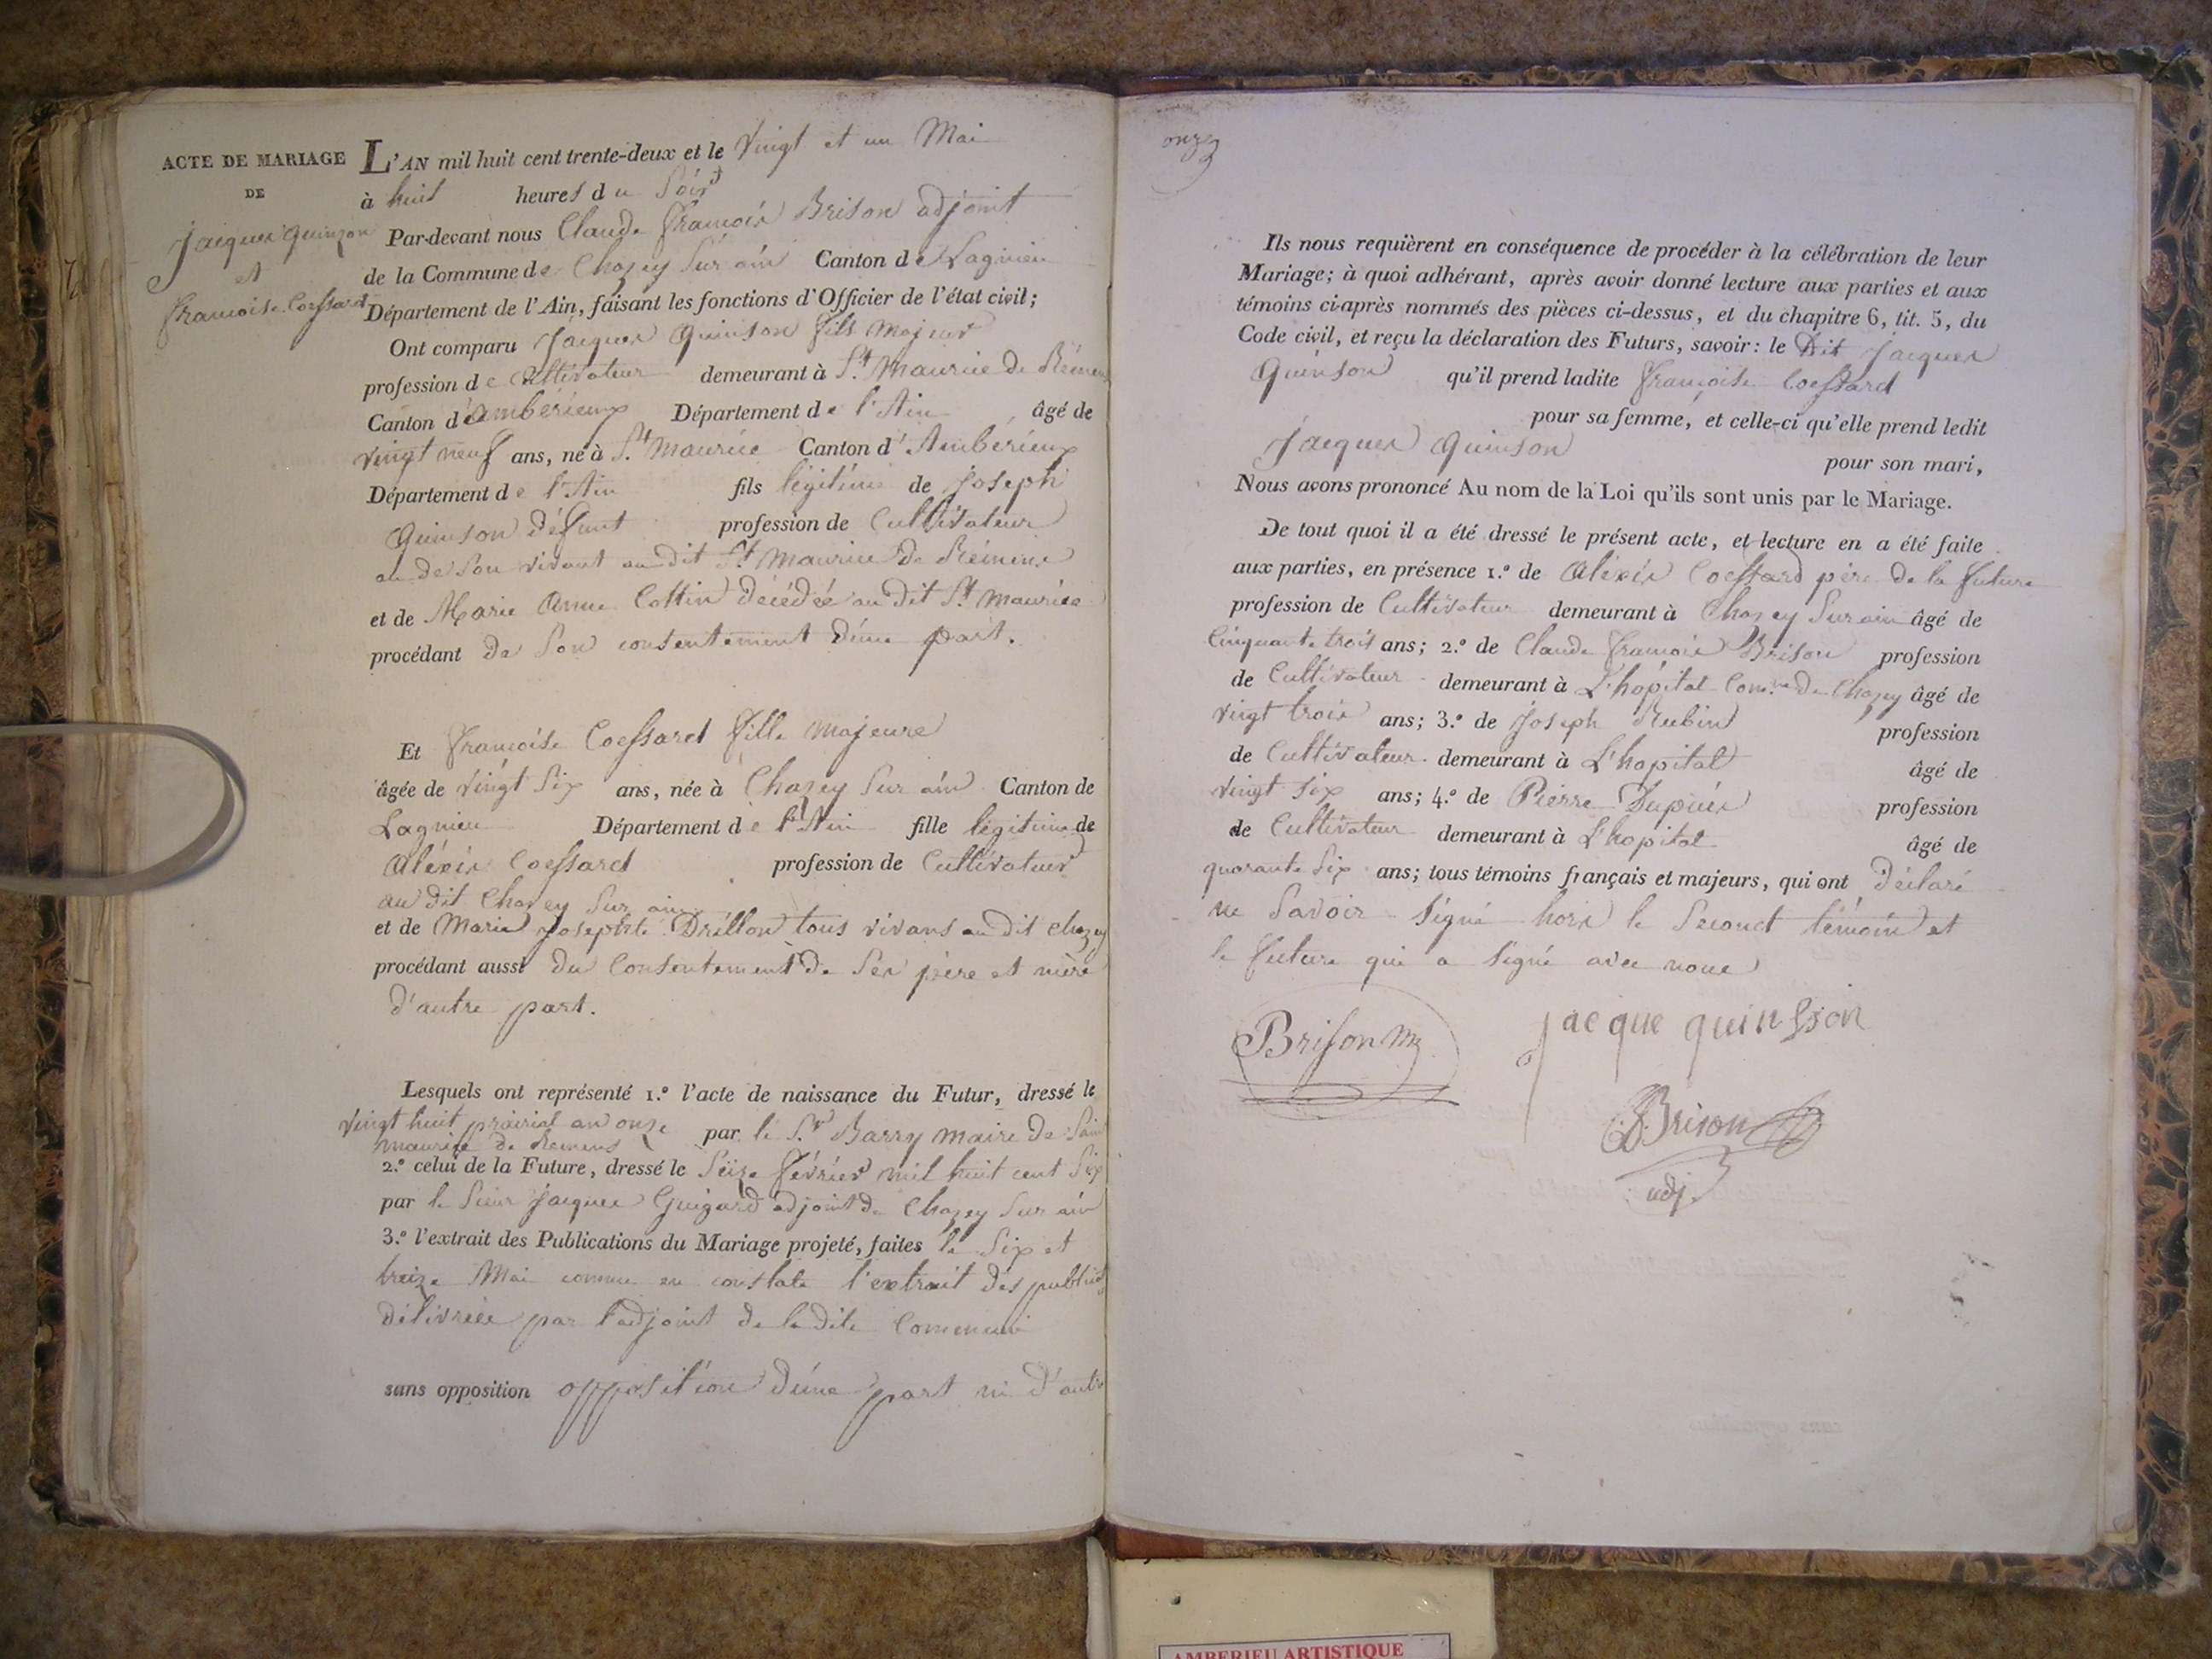 ACTE DE MARIAGE
DE
Jacques Quinzon
et
francoise Coessard
L'AN mil huit cent trente-deux et le Vingt et un Mai
à huit heures du Soir
Par-devant nous Claude francois Brison adjoint
de la Commune de Chazey Sur ain Canton de Lagnieu
Département de l'Ain, faisant les fonctions d'Officier de l'état civil;
Ont comparu Jacques Quinson fils Majeur
profession de Cultivateur demeurant à St. Maurice de Rémens
Canton d'amberieux Département de l'Ain âgé de
vingt neuf ans, né à St. Maurice Canton d'Ambérieux
Département de l'Ain fils légitime de Joseph
Quinson défunt profession de Cultivateur
au de Son vivant au dit St. Maurice de Rémens
et de Marie Anne Cottin décédée au dit St. Maurice
procédant de Son consentement d'une part.
Et françoise Coessard fille Majeure
âgée de vingt Six ans, née à Chazey Sur ain Canton de
Lagnieu Département de l'Ain fille légitime de
Alexis Coessard profession de Cultivateur
au dit Chazey Sur ain
et de Marie Josephte Drillon tous vivans au dit chazey
procédant aussi du Consentement de Ses père et mère
d'autre part.
Lesquels ont représenté 1.º l'acte de naissance du Futur, dressé le
vingt huit prairial an onze par le Sr. Barry maire de Saint
maurice de Remens
2.º celui de la Future, dressé le Seize février mil huit cent Six
par le Sieur Jacques Guigard adjoint de Chazey Sur ain
3.º l'extrait des Publications du Mariage projeté, faites le Six et
treize Mai comme en constate l'extrait des
délivrée par l'adjoint de la dite Commune
sans opposition opposition d'une part ni d'autre
onze
Ils nous requièrent en conséquence de procéder à la célébration de leur
Mariage; à quoi adhérant, après avoir donné lecture aux parties et aux
témoins ci-après nommés des pièces ci-dessus, et du chapitre 6, tit. 5, du
Code civil, et reçu la déclaration des Futurs, savoir: le Dit Jacques
Quinson qu'il prend ladite françoise Coessard
pour sa femme, et celle-ci qu'elle prend ledit
Jacques Quinson pour son mari,
Nous avons prononcé Au nom de la Loi qu'ils sont unis par le Mariage.
De tout quoi il a été dressé le présent acte, et lecture en a été faite
aux parties, en présence 1.º de Alexis Coessard père de la future
profession de Cultivateur demeurant à Chazey Sur ain âgé de
Cinquante trois ans; 2.º de Claude francois Brison profession
de Cultivateur demeurant à L'hopital Com.ne de Chazey âgé de
vingt trois ans; 3.º de Joseph Rubin profession
de Cultivateur demeurant à L'hopital âgé de
vingt Six ans; 4.º de Pierre Dupuis profession
de Cultivateur demeurant à L'hopital âgé de
quarante Six ans; tous témoins français et majeurs, qui ont déclaré
ne Savoir Signé hors le Second témoin et
le future qui a Signé avec nous
Brison
jacque quinsson
Brison
adj.
AMBERIEU ARTISTIQUE